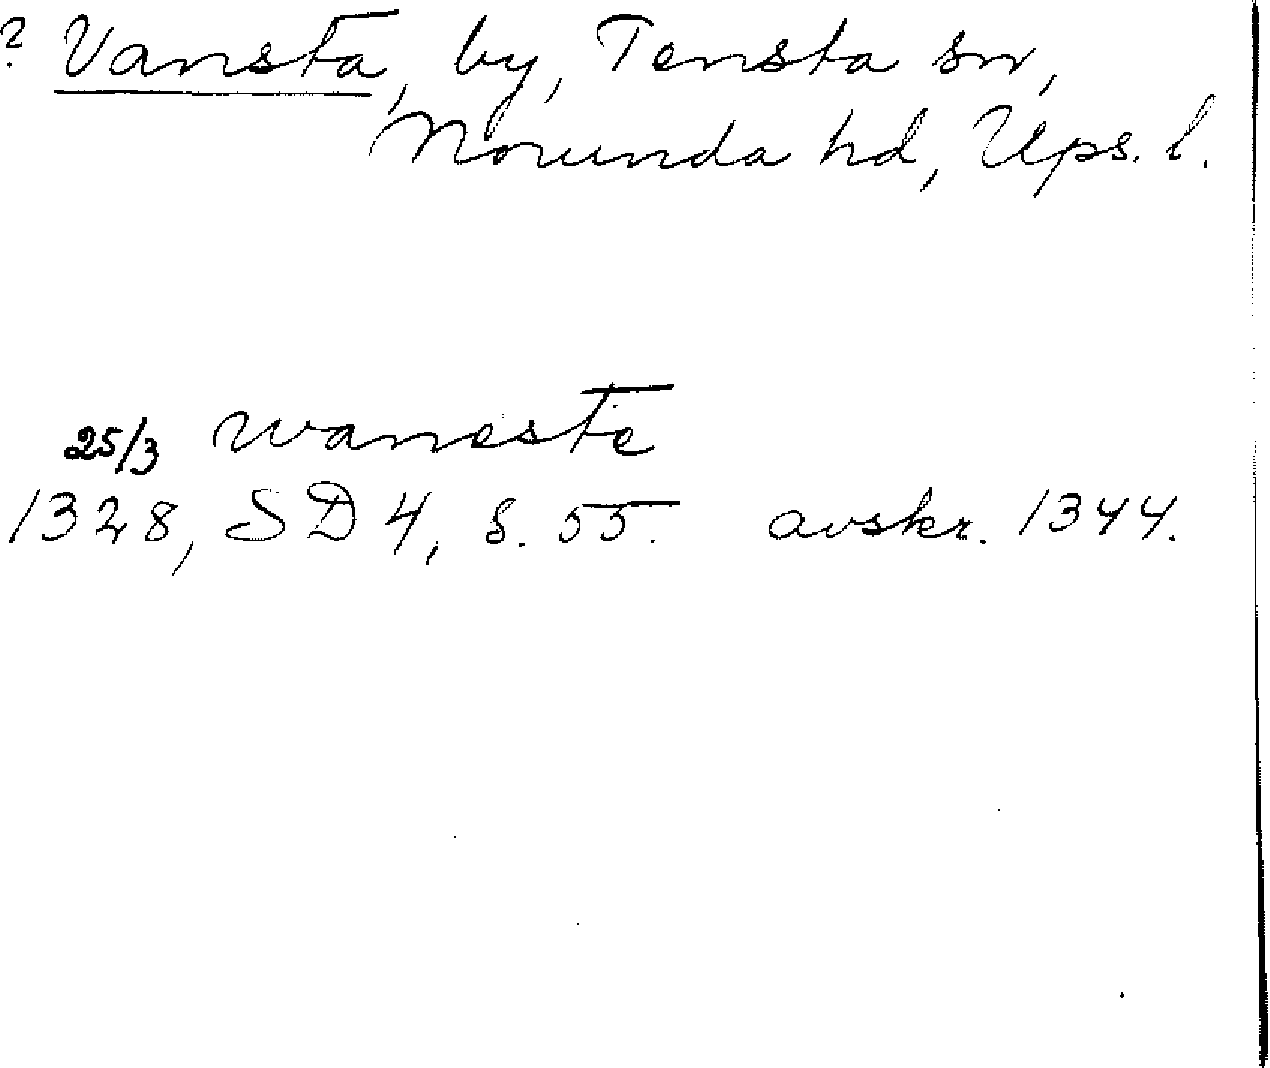 ? Vansta, by, Tensta sn,
Norunda hd, Ups. l.
25/3 waneste
1328, SD 4, s. 55. avskr. 1344.